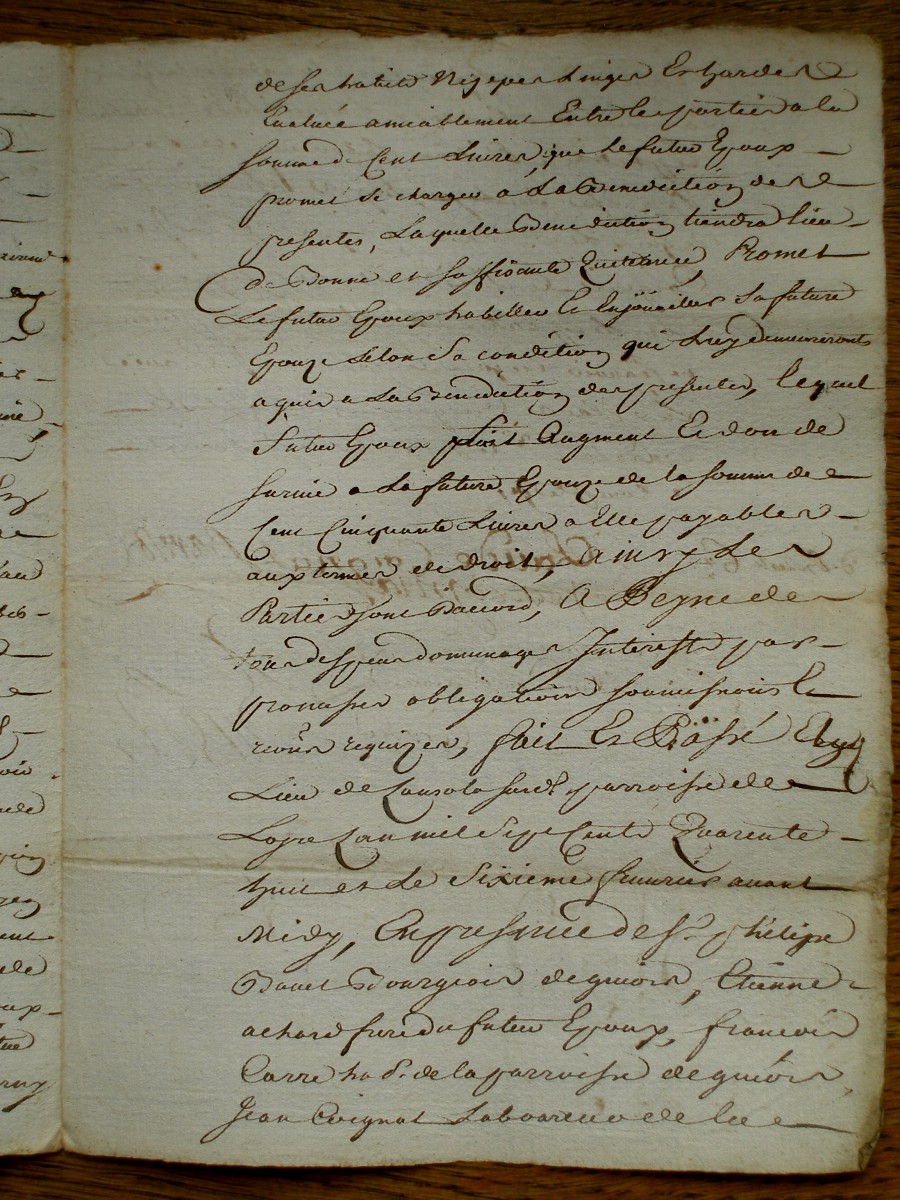 de ses habits Nipes Linges Et hardes
Evaluée amiablement Entre les parties a la
somme de Cent Livres que le futur Epoux
promet se charger a La Benediction des
presentes, Laquelle Benediction tiendra lieu
de Bonne et suffisante Quittance, Promet
Le futur Epoux habiller Et Enjoüailler sa future
Epouze selon sa condition qui Luy demeureront
aquis a La Benediction des presentes, lequel
futur Epoux fait Augment Et don de
survie a La future Epouze de la somme de
Cent Cinquante Livres a Elle payables
aux termes de droit, Ainsy Les
Parties sont Daccord, A Peyne de
tous despens dommages Interests par
promesses obligations soumissions Et
renõns requizes, fait Et Passé Au
Lieu de parroisse de
Lan mil Sept Cents Quarente
huit et Le Sixieme feuvrier avant
Midy, En presence de Sr. phelipe
Bourgeois de Etienne
achard frere du futur Epoux, francois
Carre hab. de la parroisse de
Jean Coignat Laboureur de